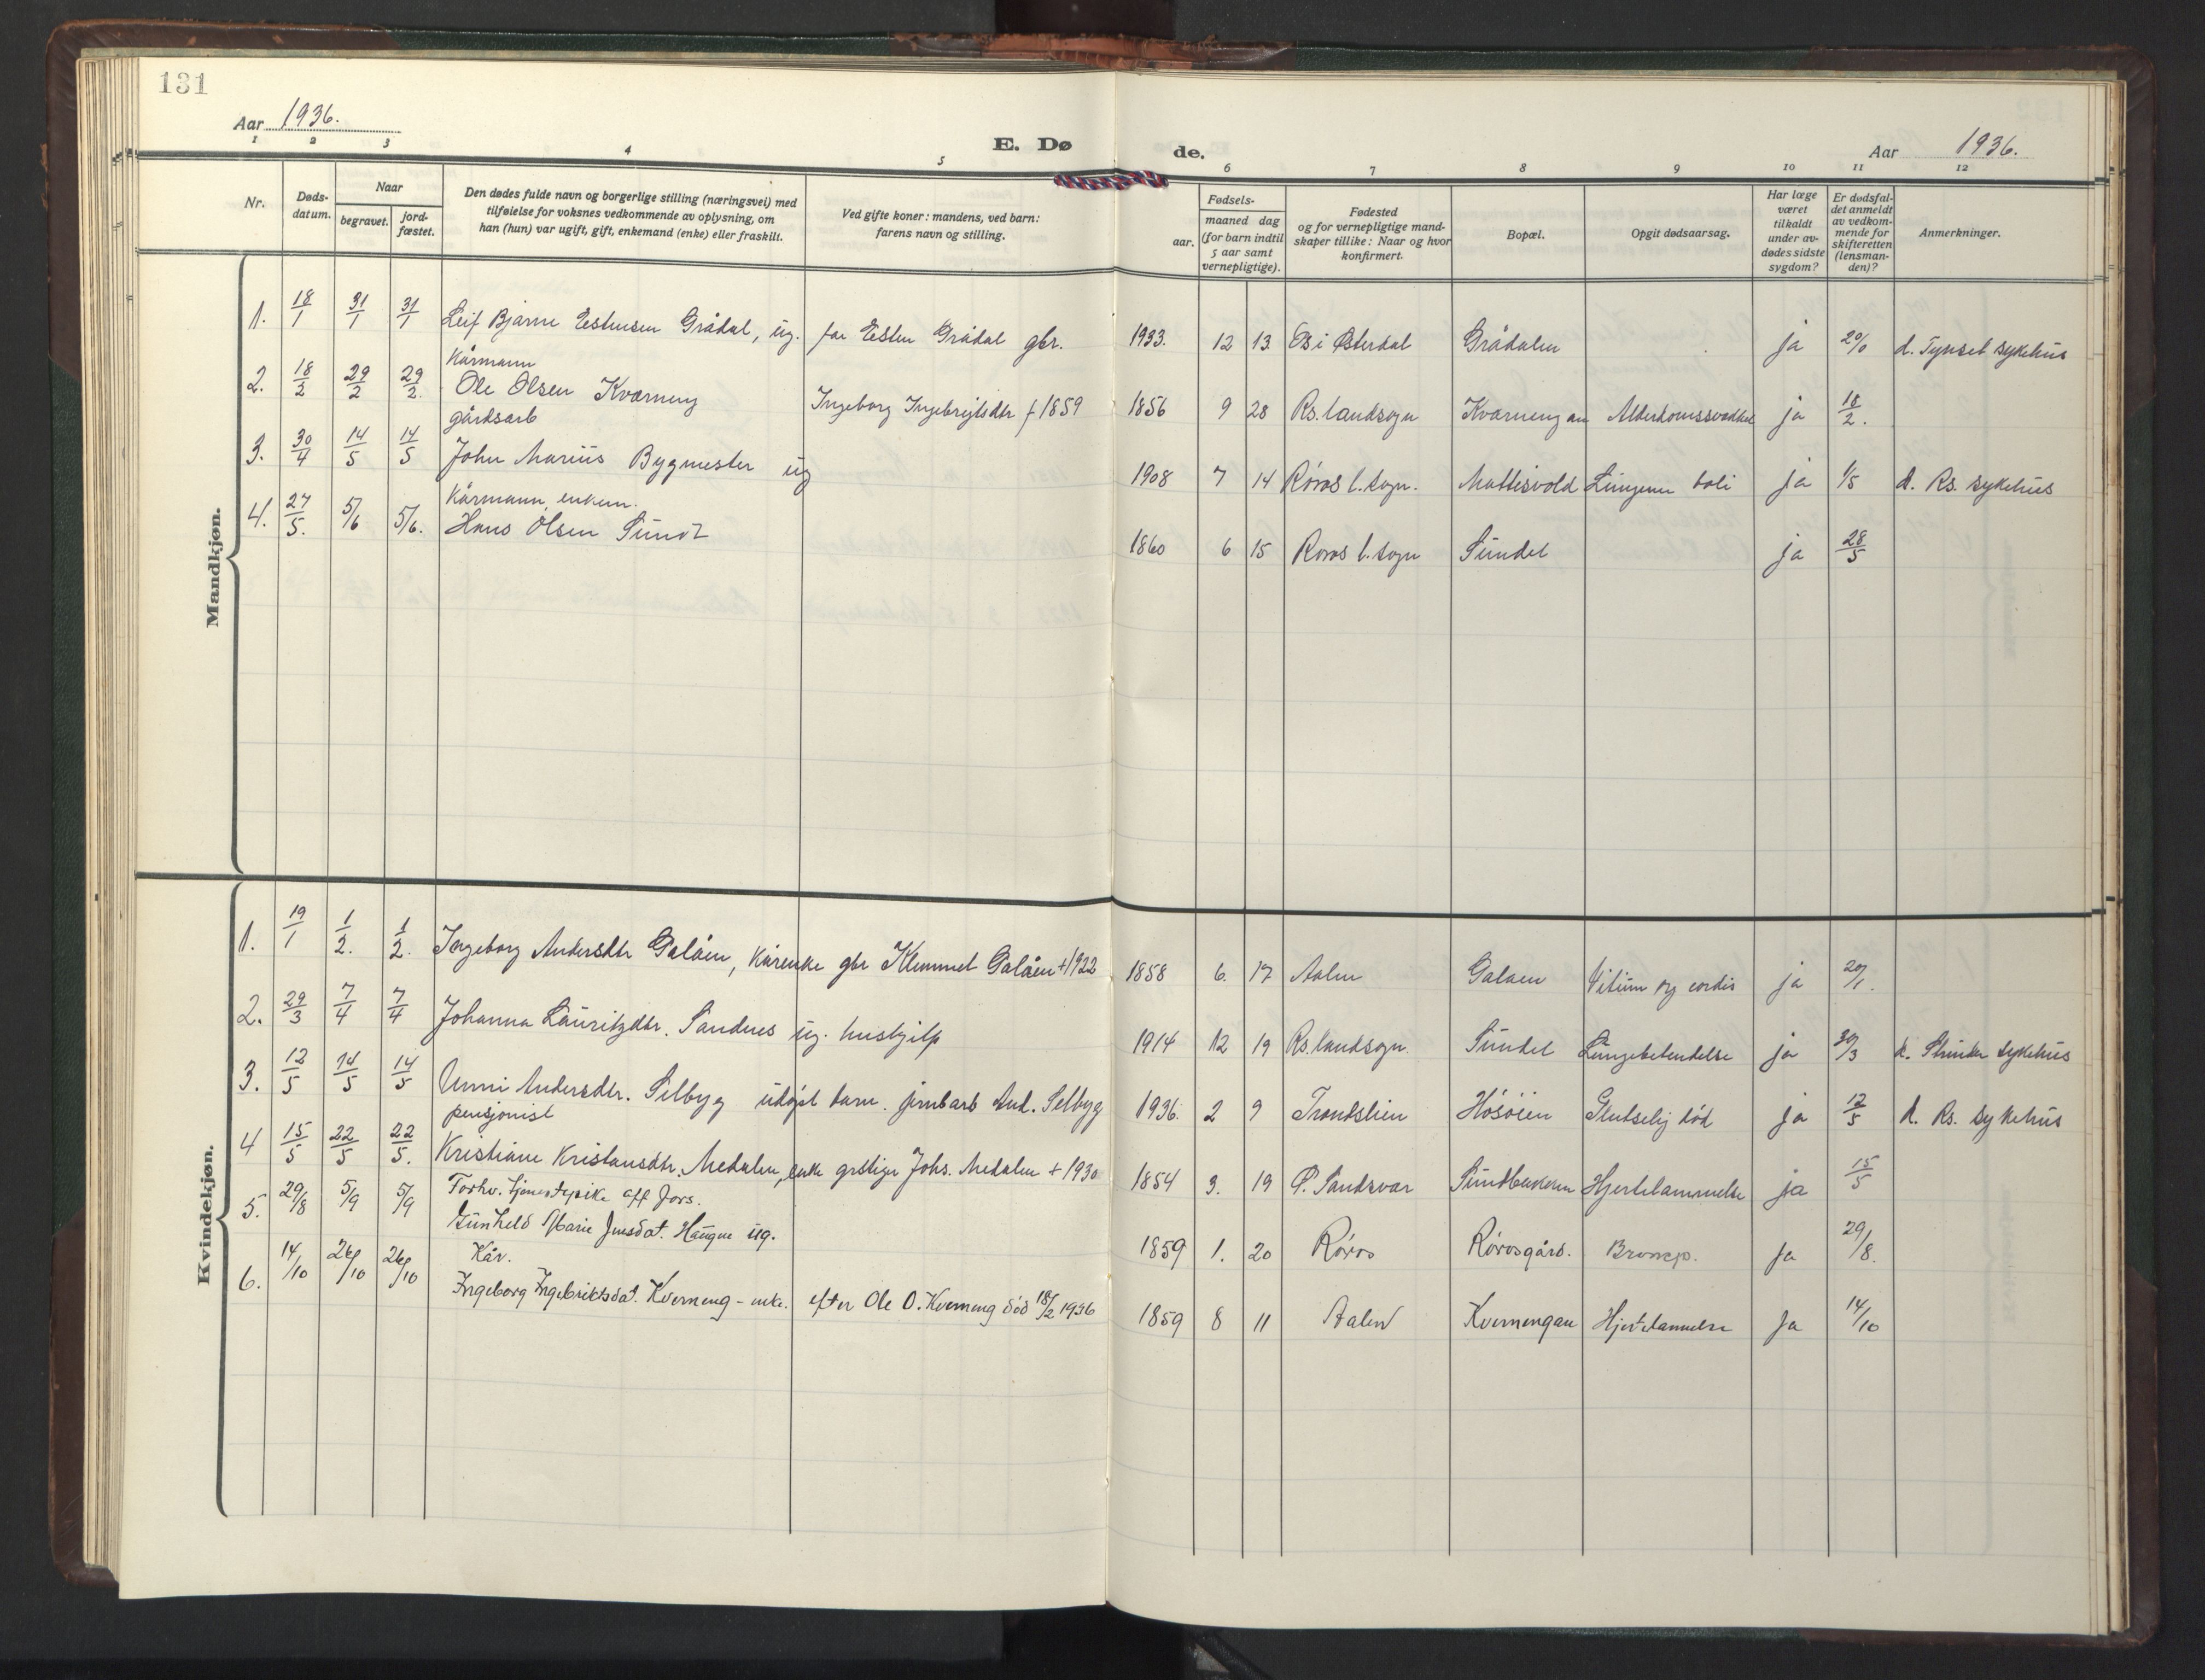 131
Aar 1936.
E. Dø
de.
Aar 1936.
1 2 3 4 5 6 7 8 9 10 11 12
Nr.
Døds-
datum.
Naar
begravet.
jord-
fæstet.
Den dødes fulde navn og borgerlige stilling (næringsvei) med
tilføielse for voksnes vedkommende av oplysning, om
han (hun) var ugift, gift, enkemand (enke) eller fraskilt.
Ved gifte koner: mandens, ved barn:
farens navn og stilling.
Fødsels-
aar.
maaned dag
(for barn indtil
5 aar samt
vernepligtige).
Fødested
og for vernepligtige mand-
skaper tillike: Naar og hvor
konfirmert.
Bopæl.
Opgit dødsaarsag.
Har læge
været
tilkaldt
under av-
dødes sidste
sygdom?
Er dødsfal-
det anmeldt
av vedkom-
mende for
skifteretten
(lensman-
den)?
Anmerkninger.
Mandkjøn.
1. 18/1 31/1 31/1 Leif Bjarne Estensen Grådal, ug. far Esten Grådal gbr. 1933. 12 13 Os i Østerdal Grådalen ja 20/0 d. Tynset sykehus
Kårmann
2. 18/2 29/2 29/2. Ole Olsen Kværneng Ingeborg Ingebrigtsdtr f 1859 1856 9 28 Rs. landsogn Kværnengan Alderdomssvakhet ja 18/2.
gårdsarb
3. 30/4 14/5 14/5 John Marius Bygmester ug 1908 7 14 Røros l. sogn. Mattisvold Lungeem boli ja 1/5 d. Rs. sykehus
Kårmann, enkem.
4. 27/5. 5/6 5/6. Hans Olsen Sundt 1860 6 15 Røros l. sogn Sundet ja 28/5
Kvindekjøn.
1. 19/1 1/2. 1/2. Ingeborg Andersdtr Galåen, kårenke gbr Klemmet Galåen +1922 1858 6. 17 Aalen Galaen Vitium og cordis ja 20/1.
2. 29/3 7/4 7/4 Johanna Lauritzdtr. Sandnes ug. hushjelp 1914 12 19 Rs. landsogn. Sundet Lungebetendelse ja 30/3 d. Stinker sykehus
3. 12/5 14/5 14/5 Unni Andersdtr. Selbyg udøpt barn. jernbarb And. Selbyg 1936. 2 9 Trondslien Høsøien Plutselig død ja 12/5 d. Rs. sykehus
pensjonist
4 15/5 22/5 22/5. Kristiane Kristansdtr. Medalen, enke Johs. Medalen + 1930 1854 3. 19 Ø. Sandsvær Sundbakken Hjertelammelse ja 15/5
Forhv. tjenestepike off fors.
5. 29/8 5/9 5/9 Gunhild Marie Jensdat. Haugen ug. 1859 1. 20 Røros Rørosgård. Broncp. Ja 29/8.
Kår.
6. 14/10 26/10 26/10 Ingeborg Ingebriktsdat. Kverneng - enke. efter Ole O. Kverneng død 18/2 1936 1859 8 11 Aalen Kvernengan Hjertelammelse Ja 14/10